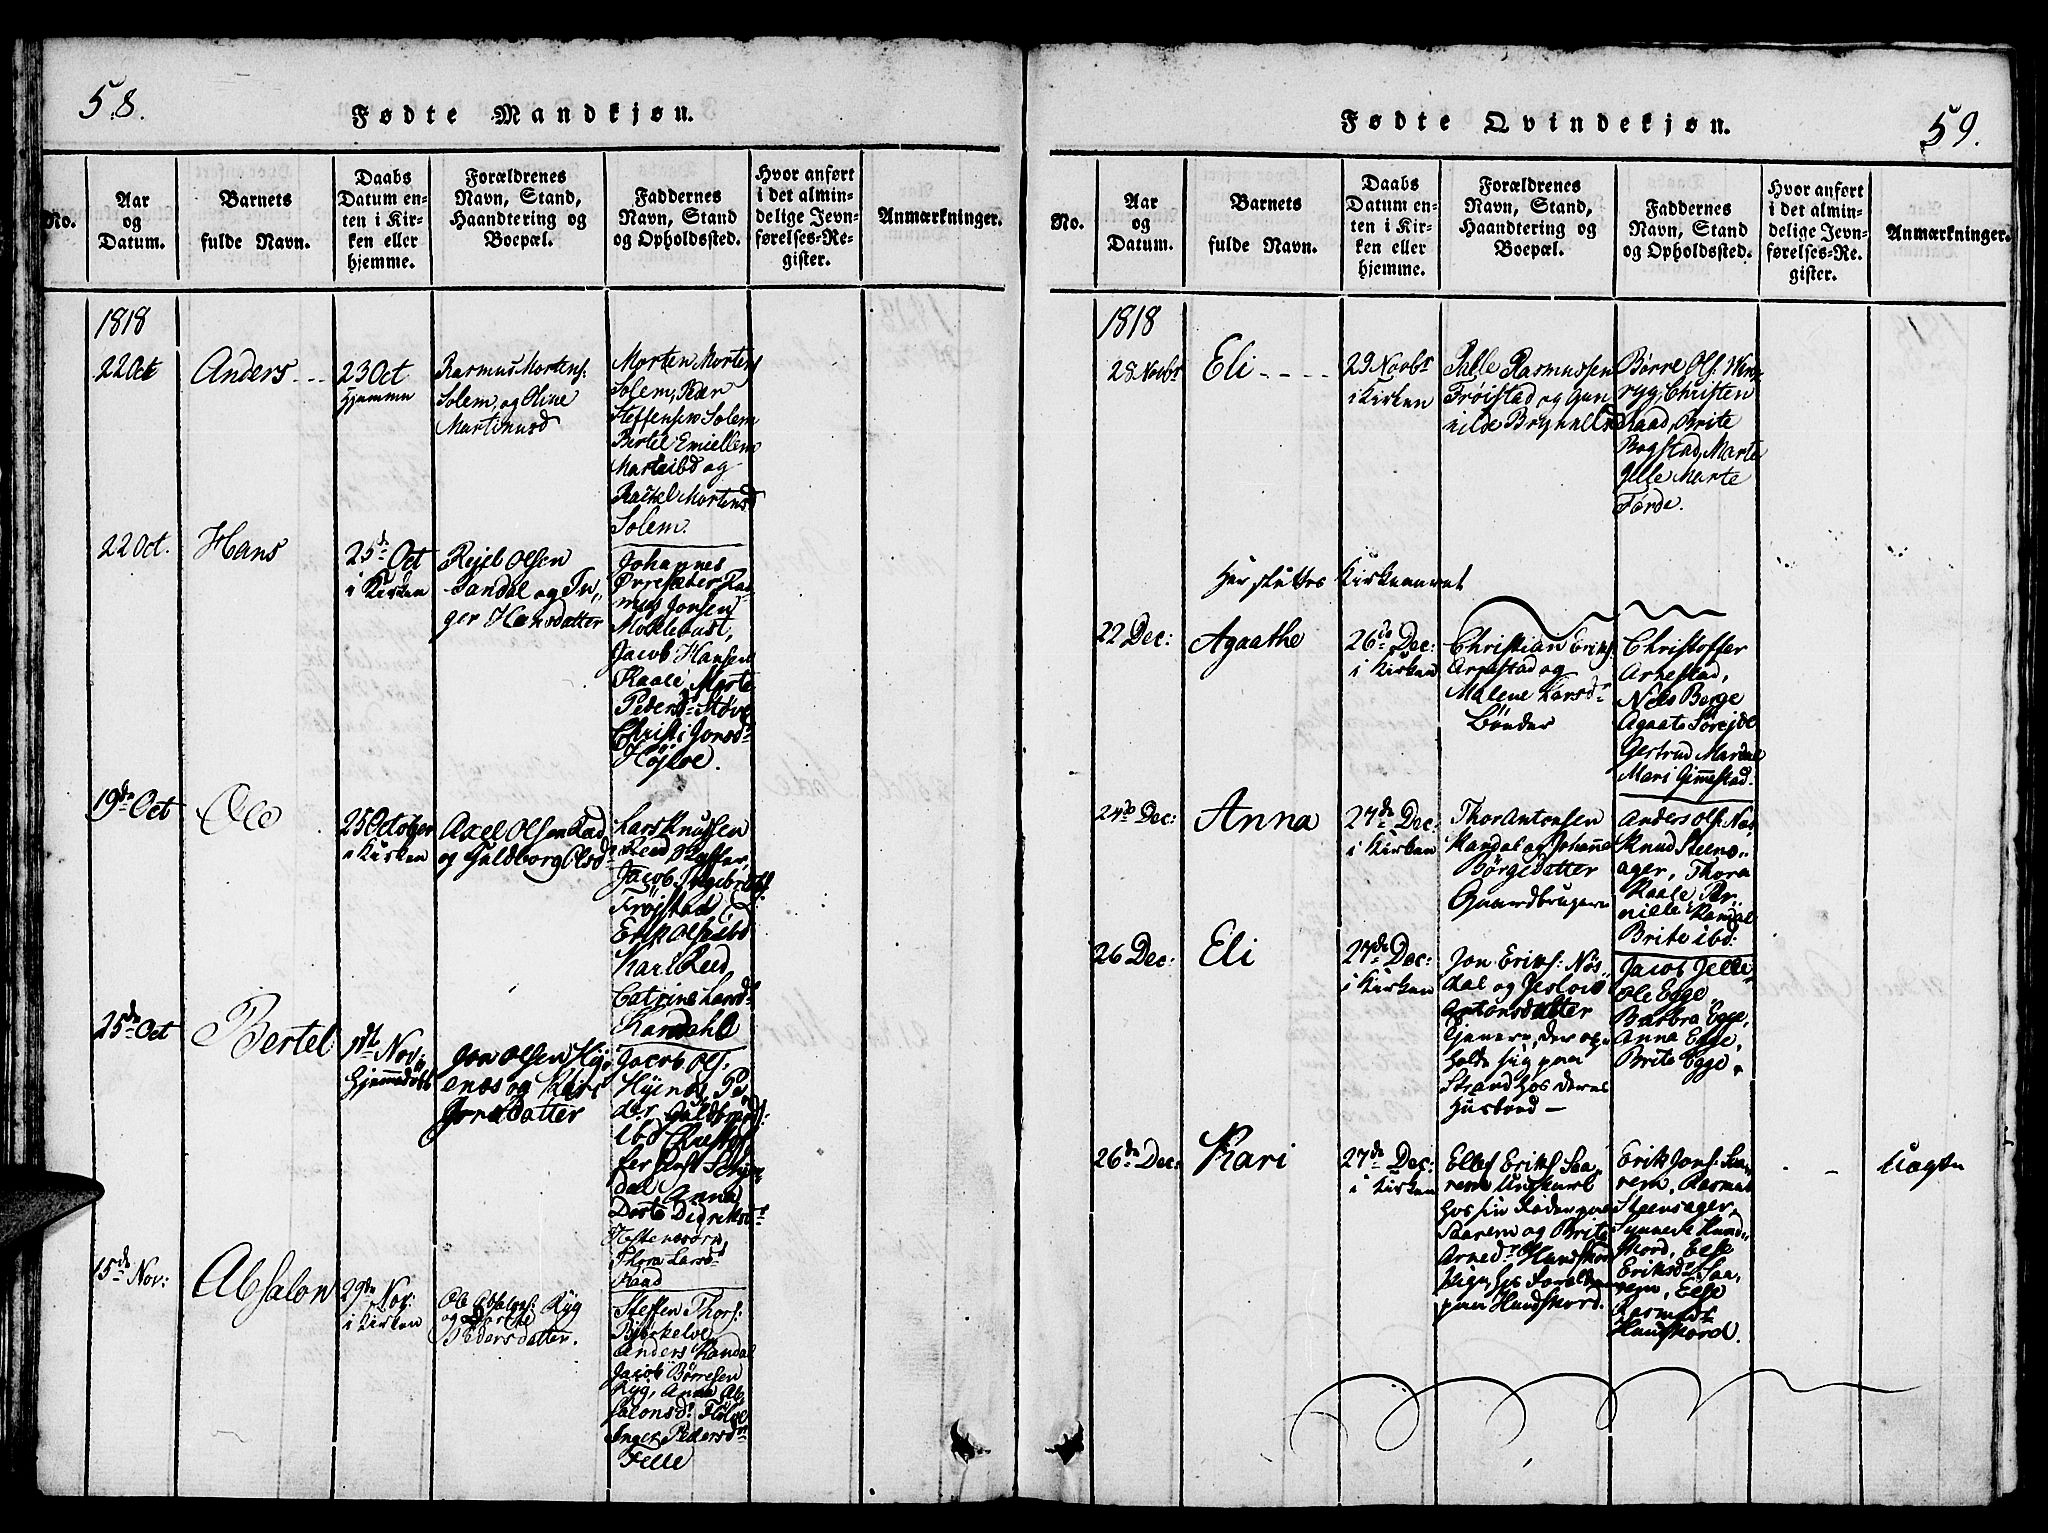 58.
Fødte Mandkjøn.
No.
Aar
og
Datum.
Barnets
fulde Navn.
Daabs
Datum en-
ten i Kir-
ken eller
hjemme.
Forældrenes
Navn, Stand,
Haandtering og
Boepæl.
Faddernes
Navn, Stand
og Opholdssted.
Hvor anført
i det almin-
delige Jevn-
førelses-Re-
gister.
Anmærkninger.
1818
22 Oct
Anders
23 Oct
Hjemme
Rasmus Mortens:
Solem, og Oline
Martinusd
Morten Mortens
Solem, Peder
Steffensen Solem
Bertel
Marte ibd og
Rachel Mortensd
Solem.
22 Oct.
Hans
25de Oct
i Kirken
Rejel Olsen
Sandal og In„
ger Hansdatter
Johannes
Ørresæter, Ras
mus Jonsen
Mocklebust,
Jacob Hansen
Raale, Marte
Pedersdr Støve
Christi Jonsdr
Höjloe.
19de Oct
Ole
25 October
i Kirken
Axel Olsen Rad
og Guldborg Olsd
Lars Knussen
Reed
Jacob Ingebrets:
Frøjstad
Erik Ols ibd
Kari Reed
Catrine Larsdr
Kandahl
25de Oct
Bertel
1st Nov:
Hjemedøbt
Jon Olsen Hÿe
enæs og Kari
Jonsdatter
Jacob Ols:
Hÿenæs, Pe
der Guldbrands:
ibd Christof
fer
dal, Anna
Dorte Didriksdr
Thora Larsdr
Raad
15de Nov:
Absalon
29de Nov:
i Kirken
Ole Absalons: Ryg
og Dorthe
Pedersdatter.
Steffen Thors:
Bjørkeloe
Anders Kandal
Jacob Børresen
Ryg, Anna Ab
salonsdr Fløloe
Inger Pedersdr
Felle
59.
Fødte Qvindekjøn.
No.
Aar
og
Datum.
Barnets
fulde Navn.
Daabs
Datum en-
ten i Kir-
ken eller
hjemme.
Forældrenes
Navn, Stand,
Haandtering og
Boepæl.
Faddernes
Navn, Stand
og Opholdssted.
Hvor anført
i det almin-
delige Jevn-
førelses-Re-
gister.
Anmærkninger.
1818
28 Novbr
Eli
29 Novbr
i Kirken
Palle Rasmussen
Frøistad og Gun
nilde Brynilsd
Børre Ols:
ryg, Christen
Raad, Brite
Bogstad, Marte
Jelle Marte
Førde.
Her sluttes Kirkeaaret
22 Dec:
Agaathe
26de Dec:
i Kirken
Christian Eriks:
Arnestad og
Malene Larsdr
Bönder
Christoffer
Arnestad,
Nels Berge
Agaate Sørejde
Gertrud Mardal
Mari Gimestad.
24de Dec:
Anna
27de Dec:
i Kirken
Thor Antonsen
Kandal og Johanne
Börgedatter
Gaardbrugere
Anders Ols: Nos
Knud Steens„
ager, Thora
Raale Per„
nille Kandal
Brite ibd:
26 Dec:
Eli
27de Dec:
i Kirken
Jon Eriks: Nös„
dal og
Antonsdatter
tjenere, der op„
holde sig paa
Strand hos deres
Husbond —
Jacob Jelle
Ole Egge
Barbra Egge,
Anna Egge,
Brite Egge.
26de Dec:
Kari
27de Dec:
i Kirken
Ellef Eriks Saa„
rem Ungkarl
hos sin Fader paa
Saarem og Brite
Arnedr Hundskor
Pige, hos Forældrene
paa Hundskord.
Erik Jons: Saa„
rem, Rasmus
Steensager,
Synneve Hund„
skord, Else
Eriksdr Saa„
rem, Else
Rasmusdr
Hundskord.
Uægte